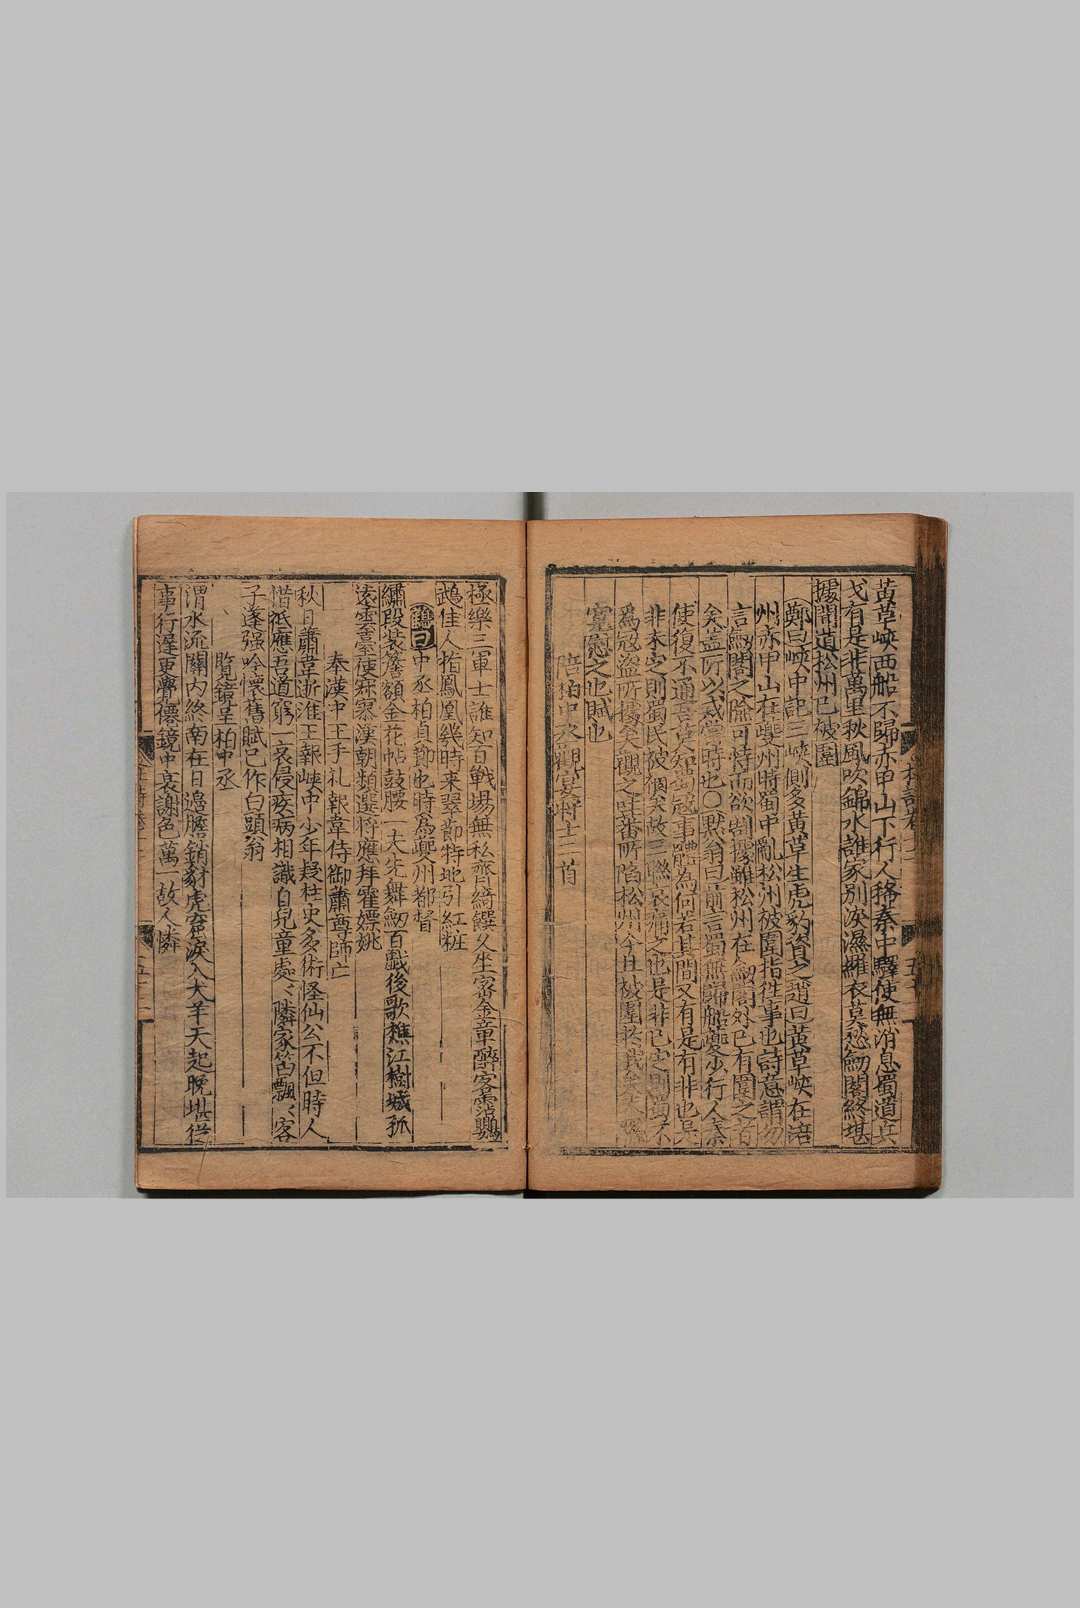 黄草峽西船不歸赤甲山下行人稀秦中驛使無消息蜀道兵
戈有是非萬里秋風吹錦水誰家別淚濕羅衣莫愁劒閣終堪
據聞道松州已被圍
鄭曰峽中記三峽側多黄草生虎豹資之趙曰黄草峽在涪
州赤甲山在夔州時蜀中亂松州被圍指徃事也詩意謂勿
言劒閣之險可恃而欲割據雖松州在劒閣外已有圍之者
矣盖所以戒當時也〇黙翁曰前言蜀無歸船夔少行人秦
使復不通言莫知蜀冦事體為何若其間又有是有非也是
非未定則蜀民被
爲冦盗所據矣觀之吐蕃所陷松州今且被圍於我
寛慰之也賦也
陪柏中丞觀宴將士二首
極樂三軍士誰知百戰場無私齊綺饌久坐密金章醉客霑鸚
鵡佳人指鳳凰幾時来翠節特地引紅粧
鶴曰中丞柏貞節也時爲夔州都督
繡段裝簷額金花帖鼓腰一夫先舞劒百戲後歌樵江樹城孤
遠雲臺使寂寥漢朝頻選將應拜霍嫖姚
奉漢中王手札報韋侍御蕭尊師亡
秋日蕭韋逝淮王報峽中少年疑柱史多術怪仙公不但時人
惜祇應吾道窮一哀侵疾病相識自兒童處〻隣家笛飄〻客
子蓬强吟懷舊賦已作白頭翁
覽鏡呈柏中丞
渭水流關内終南在日邉膽銷豺虎窟淚入犬羊天起晚堪從
事行遲更覺僊鏡中衰謝色萬一故人憐